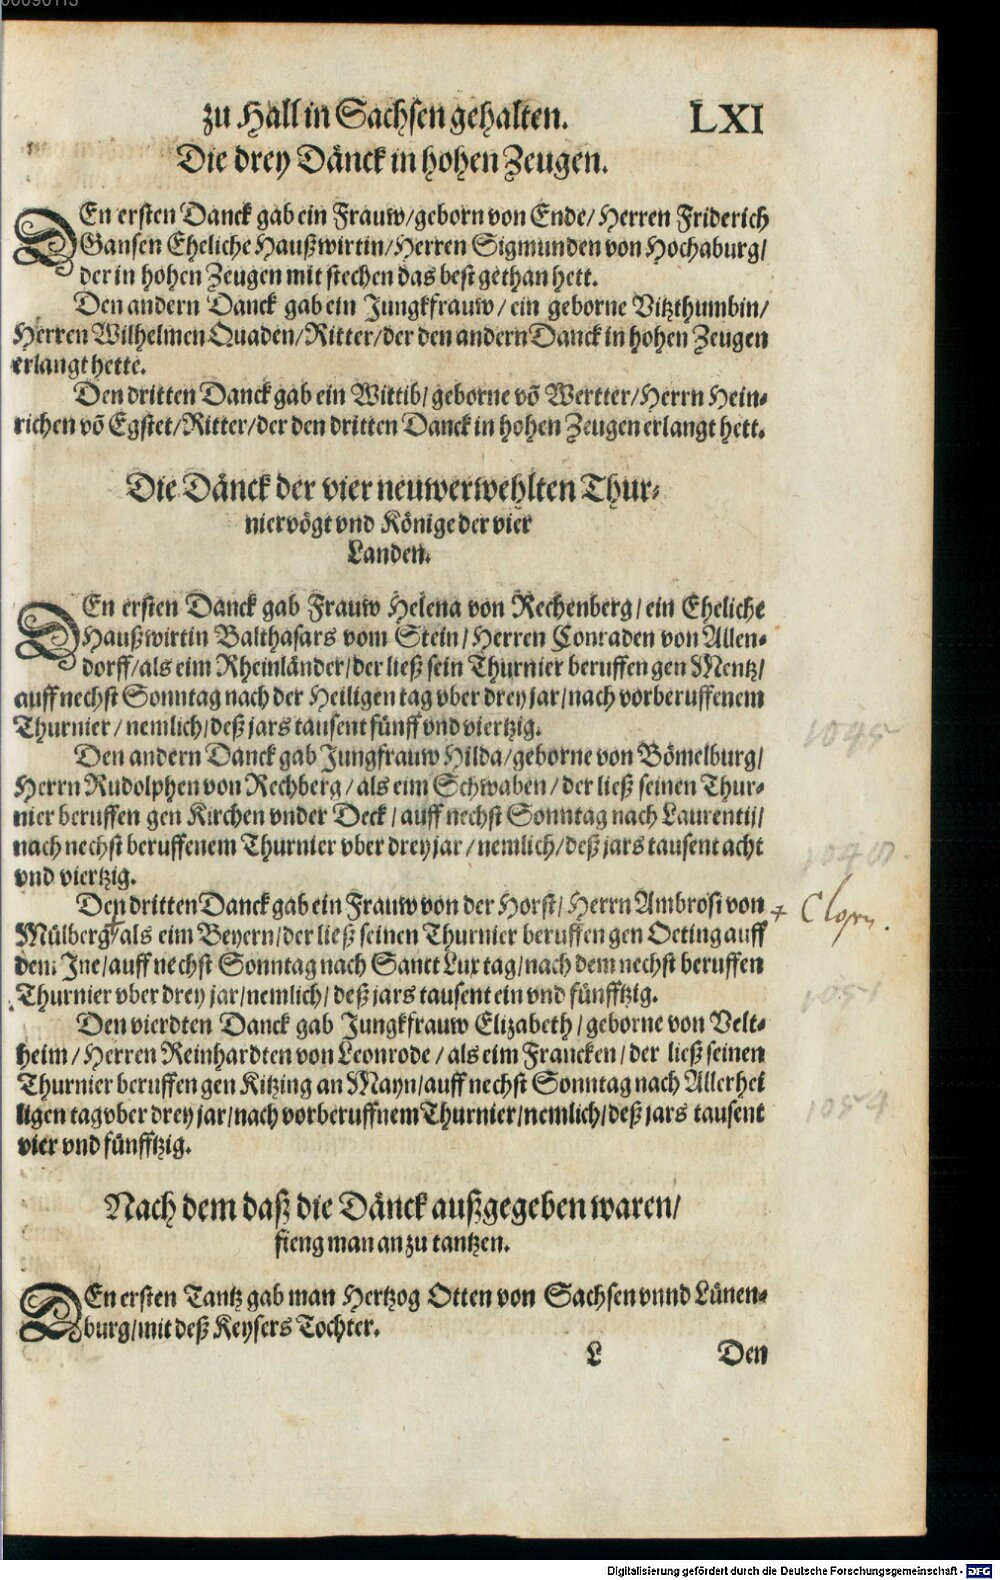 zu Hall in Sachsen gehalten. LXI
Die drey Dänck in hohen Zeugen.
DEn ersten Danck gab ein Frauw/geborn von Ende/Herren Friderich
Gansen Eheliche Haußwirtin/Herren Sigmunden von Hochaburg/
der in hohen Zeugen mit stechen das best gethan hett.
Den andern Danck gab ein Jungkfrauw/ein geborne Vitzthumbin/
Herren Wilhelmen Quaden/Ritter/der den andern Danck in hohen Zeugen
erlangt hette.
Den dritten Danck gab ein Wittib/geborne võ Wertter/Herrn Hein-
richen võ Egstet/Ritter/der den dritten Danck in hohen Zeugen erlangt hett.
Die Dänck der vier neuwerwehlten Thur-
niervögt vnd Könige der vier
Landen.
DEn ersten Danck gab Frauw Helena von Rechenberg/ein Eheliche
Haußwirtin Balthasars vom Stein/Herren Conraden von Allen-
dorff/als eim Rheinländer/der ließ sein Thurnier beruffen gen Mentz/
auff nechst Sonntag nach der Heiligen tag vber drey jar/nach vorberuffenem
Thurnier/nemlich/deß jars tausent fünff vnd viertzig.
1045
Den andern Danck gab Jungfrauw Hilda/geborne von Bömelburg/
Herrn Rudolphen von Rechberg/als eim Schwaben/der ließ seinen Thur-
nier beruffen gen Kirchen vnder Deck/auff nechst Sonntag nach Laurentij/
nach nechst beruffenem Thurnier vber drey jar/nemlich/deß jars tausent acht
vnd viertzig.
Den dritten Danck gab ein Frauw von der Horst/Herrn Ambrosi von
Mülberg/als eim Beyern/der ließ seinen Thurnier beruffen gen Oeting auff
dem Ine/auff nechst Sonntag nach Sanct Lux tag/nach dem nechst beruffen
Thurnier vber drey jar/nemlich/deß jars tausent ein vnd fünfftzig.
1051
Den vierdten Danck gab Jungkfrauw Elizabeth/geborne von Velt-
heim/Herren Reinhardten von Leonrode/als eim Francken/der ließ seinen
Thurnier beruffen gen Kitzing an Mayn/auff nechst Sonntag nach Allerhei
ligen tag vber drey jar/nach vorberuffnem Thurnier/nemlich/deß jars tausent
vier vnd fünfftzig.
1054
Nach dem daß die Dänck außgegeben waren/
fieng man an zu tantzen.
DEn ersten Tantz gab man Hertzog Otten von Sachsen vnnd Lünen-
burg/mit deß Keysers Tochter.
L Den
Digitalisierung gefördert durch die Deutsche Forschungsgemeinschaft - DFG